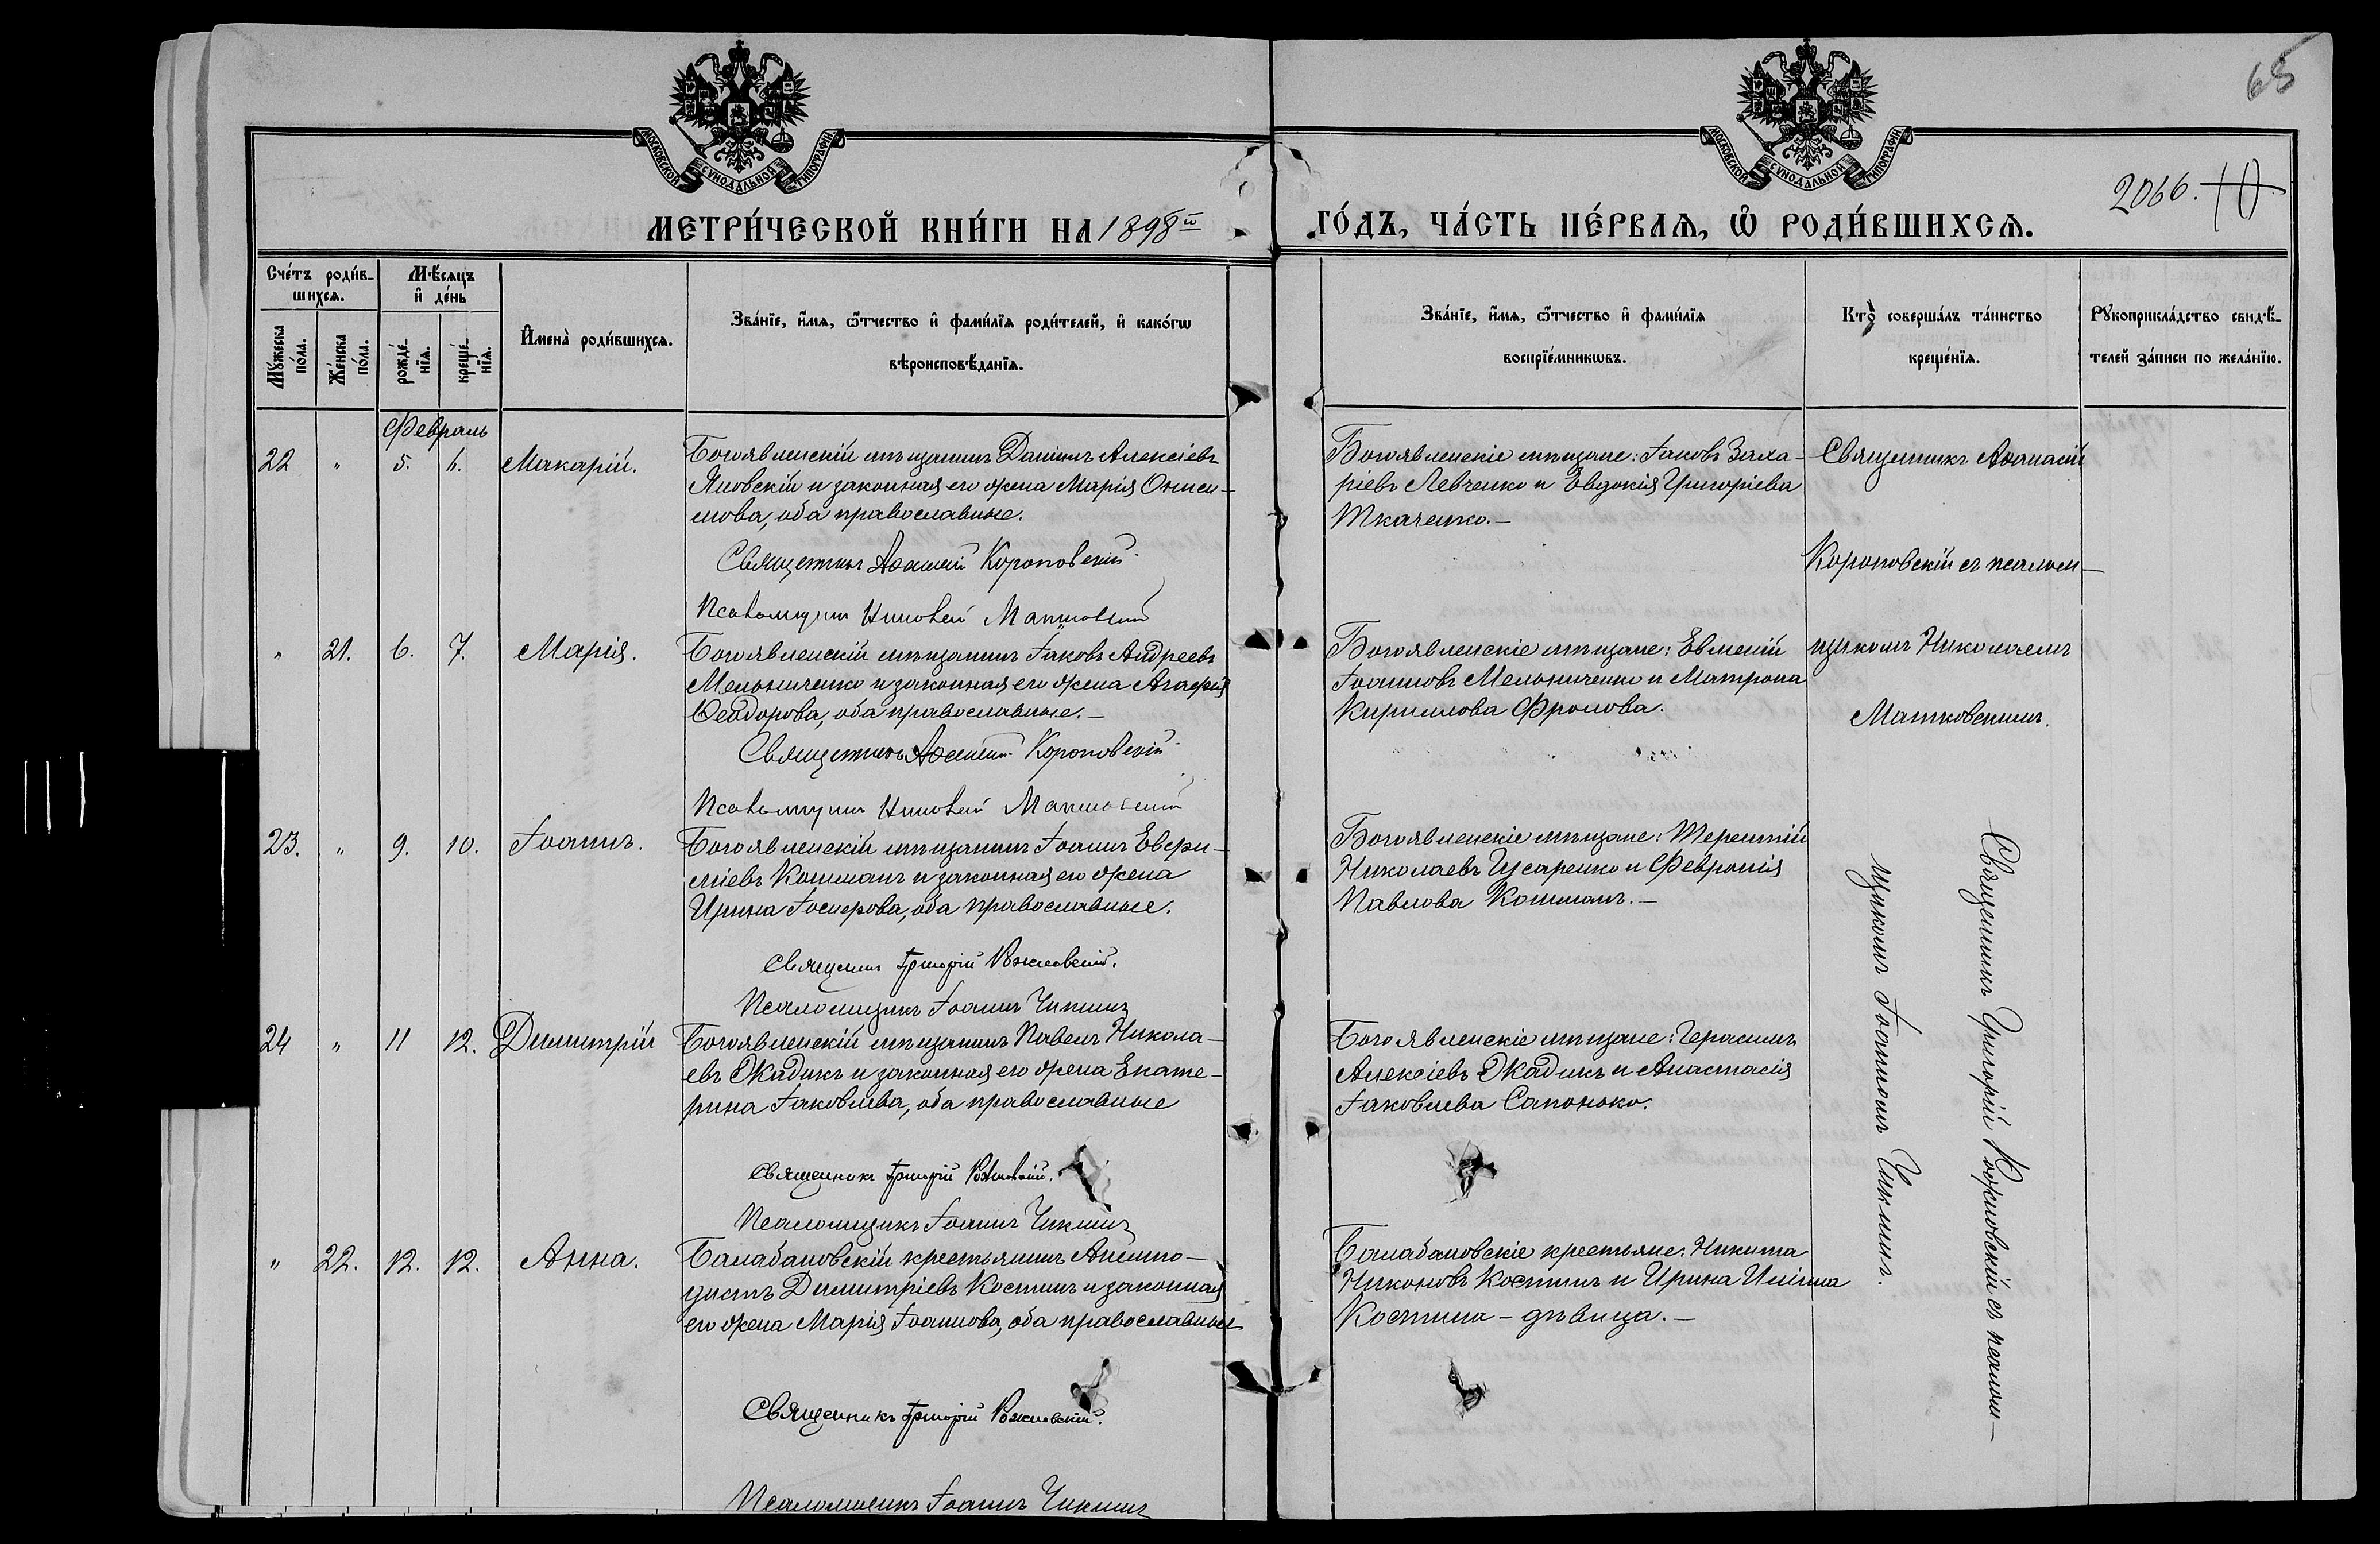 65
2066.
МОСКОВСКОЙ СѴНОДАЛЬНОЙ ТИПОГРАФІИ
МОСКОВСКОЙ СѴНОДАЛЬНОЙ ТИПОГРАФІИ
МЕТРИ́ЧЕСКОЙ КНИ́ГИ НА 1898й ГО́ДЪ, ЧА́СТЬ ПЕ́РВАѦ, Ѡ҆ РОДИ́ВШИХСѦ.
Сче́тъ роди́в-
шихсѧ.
Мꙋ́жеска по́ла.
Же́нска по́ла.
Мѣ́сѧцъ
и҆ де́нь
рожде́-
нїѧ.
креще́-
нїѧ.
И҆мена̀ роди́вшихсѧ.
Зва́нїе, и҆́мѧ, ѻ҆́тчество и҆ фами́лїѧ роди́телей, и҆ како́гѡ
вѣроисповѣ́данїѧ.
Зва́нїе, и҆́мѧ, ѻ҆́тчество и҆ фами́лїѧ
воспрїе́мникѡвъ.
Кто̀ соверша́лъ та́инство
креще́нїѧ.
Рꙋкоприкла́дство свидѣ́-
телей за́писи по жела́нїю.
Февраль
22 " 5. 6. Макарій.
Богоявленскій мѣщанинъ Даніилъ Алексіевъ
Яновскій и законная его жена МаріяОниси-
мова, оба православные.
Священникъ Аѳанасій Короповскій
Псаломщикъ Николай Матковскій
Богоявленскіе мѣщане: Іаковъ Заха-
ріевъ Левченко и Евдокія Григоріева
Ткаченко.—
Священникъ Аѳанасій
Короповскій съ псалом-
щикомъ Николаемъ
Матковскимъ.
" 21. 6. 7. Марія.
Богоявленскій мѣщанинъ Іаковъ Андреевъ
Мельниченко и законная его жена Агафія
Ѳеодорова, оба православные.—
Священникъ Аѳанасій Короповскій
Псаломщикъ Николай Матковскій
Богоявленскіе мѣщане: Евменій
Іоанновъ Мельниченко и Матрона
Кириллова Фролова.
23. " 9. 10. Іоаннъ.
Богоявленскій мѣщанинъ Іоаннъ Евфи-
міевъ Кошманъ и законная его жена
Ирина Іосифова, оба православные.
Священникъ Григорій
Псаломщикъ Іоаннъ Чикминъ
Богоявленскіе мѣщане: Терентій
Николаевъ Гусаренко и Февронія
Павлова Кошманъ.—
Священникъ Григорій съ псалом-
щикомъ Іоанномъ Чикминъ.
24 " 11 12. Димитрій
Богоявленскій мѣщанинъ Павелъ Никола-
евъ Жадикъ и законная его жена Екате-
рина Іаковлева, оба православные
Священникъ Григорій
Псаломщикъ Іоаннъ Чикминъ
Богоявленскіе мѣщане: Герасимъ
Алексіевъ Жадикъ и Анастасія
Іаковлева Сапонько.
" 22. 12. 12. Анна.
Балабановскій крестьянинъ Анемпо-
дистъ Димитріевъ Костинъ и законная
его жена Марія Іоаннова, оба православные
Священникъ Григорій
Псаломщикъ Іоаннъ Чикминъ
Балабановскіе крестьяне: Никита
Никоновъ Костинъ и Ирина Иліина
Костина – дѣвица.—